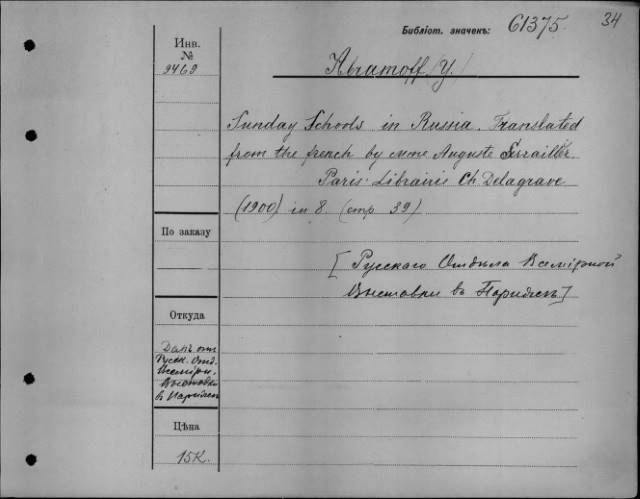 Библіот. значекъ: 61375. 34
Инв.
№
9469
Abramoff (Y.)
Sunday Schools in Russia. Translated
from the french by Mme Auguste Serrailler
Paris. Librairie Ch. Delagrave
(1900) in 8. (стр 39)
По заказу
[Русскаго Отдѣла Всемірной
Выставки въ Парижѣ]
Откуда
Даръ от
Русск. Отд.
Всемірн.
Выставки
въ Парижѣ
Цѣна
15к.